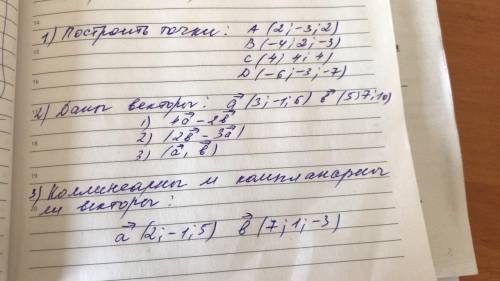 1) Построить точки: A (2; -3; 2)
B (-4; 2; -3)
C (4; 4; 4)
D (-6; -3; -7)
2) Даны векторы: a⃗ (3; -1; 6) b⃗ (5; 7; 10)
1) 4a⃗ - 2b⃗
2) |2b⃗ - 3a⃗|
3) (a⃗, b⃗)
3) Коллинеарны и компланарны
ли векторы:
a⃗ (2; -1; 5) b⃗ (7; 1; -3)